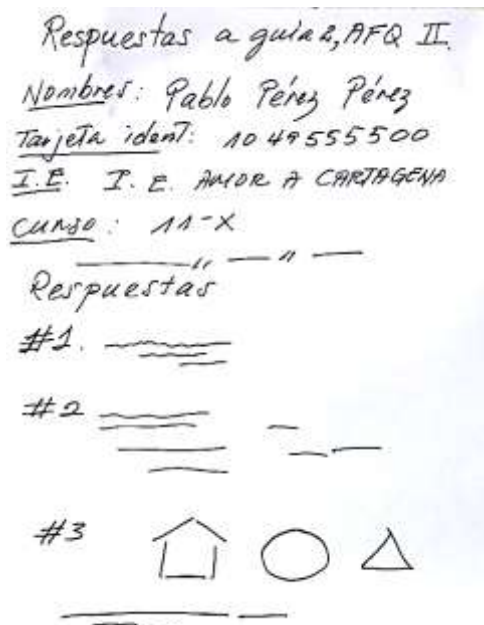 Respuestas a guia 2, AFQ II.
Nombres: Pablo Pérez Pérez
Tarjeta ident: 1049555500
I.E. I.E. AMOR A CARTAGENA
Curso: 11-X
Respuestas
#1.
#2
#3